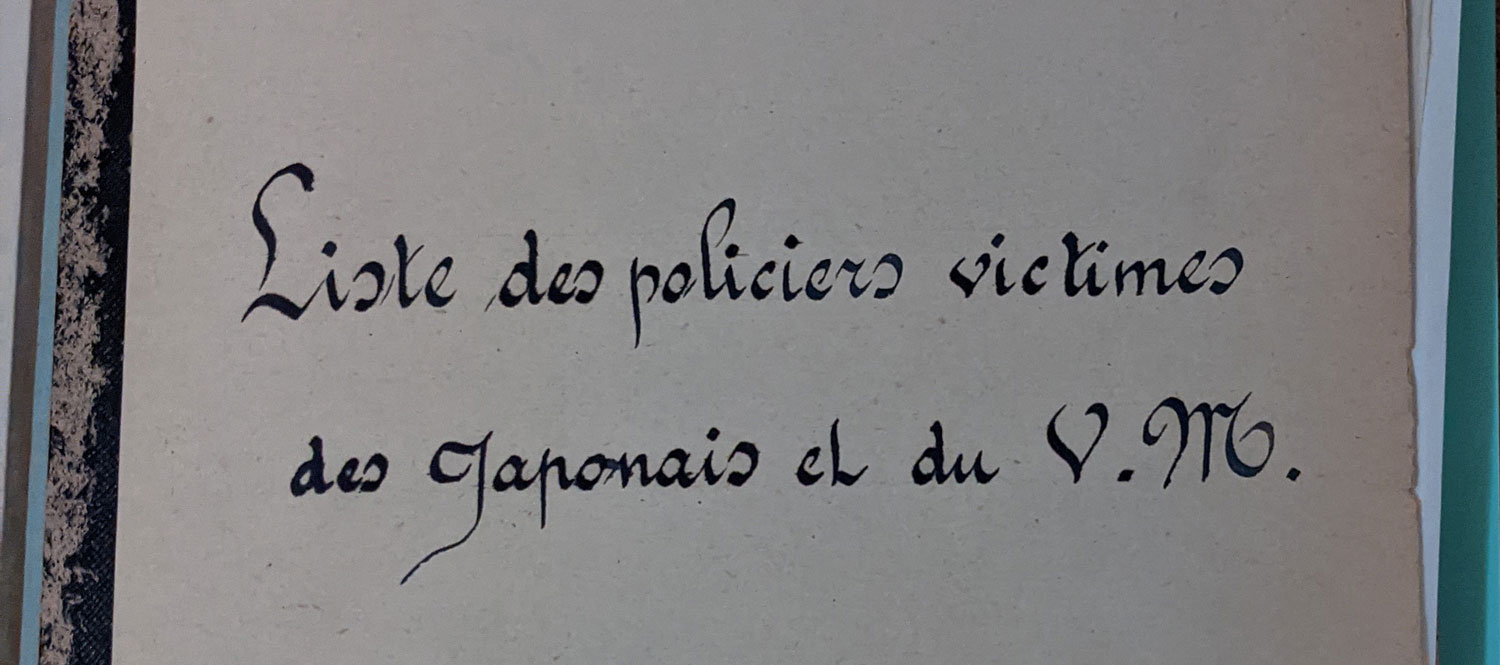 Liste des policiers victimes
des Japonais et du V.M.